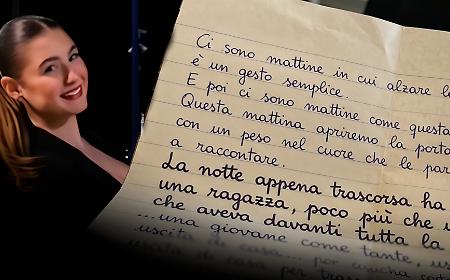 Ci sono mattine in cui alzare l
è un gesto semplice.
E poi ci sono mattine come questa
Questa mattina apriremo la porta
con un peso nel cuore che le par
a raccontare.
La notte appena trascorsa ha
una ragazza, poco più che u
che aveva davanti tutta la
...una giovane come tante, us
uscita di casa... per